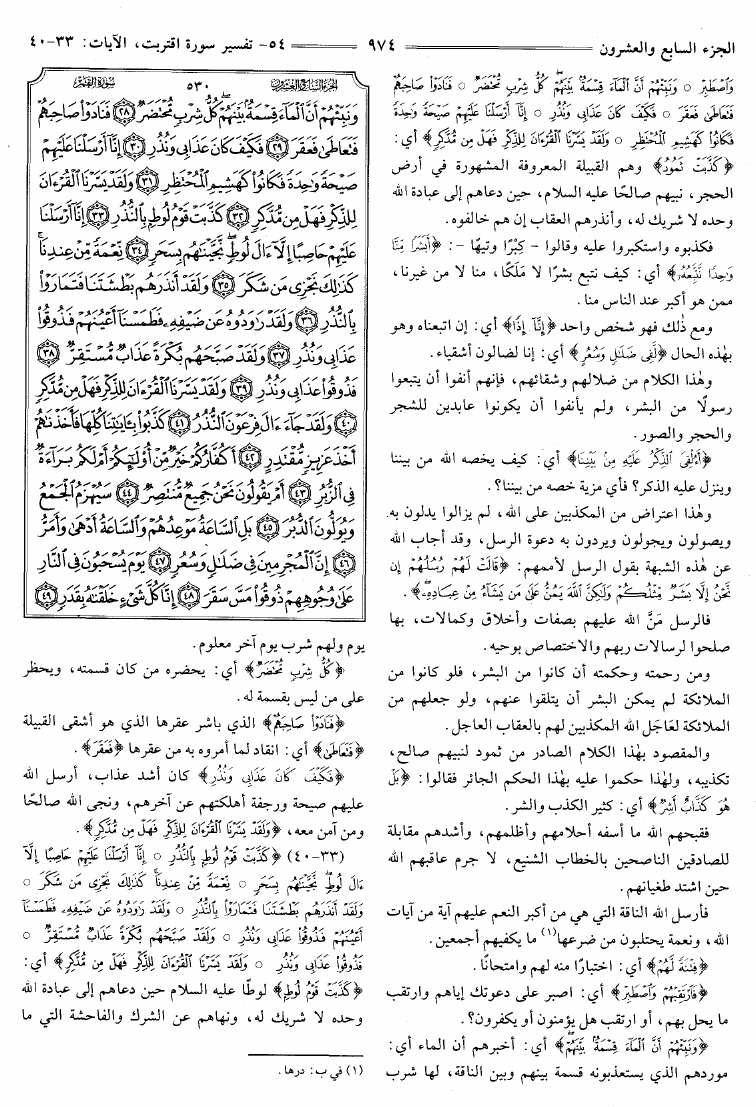 الجزء السابع والعشرون
٩٧٤
٥٤- تفسير سورة اقتربت، الآيات: ٣٣-٤٠
وَٱصۡطَبِرۡ ○ وَنَبِّئۡهُمۡ أَنَّ ٱلۡمَآءَ قِسۡمَةُۢ بَيۡنَهُمۡۖ كُلُّ شِرۡبٖ مُّحۡتَضَرٞ ○ فَنَادَوۡاْ صَاحِبَهُمۡ
فَتَعَاطَىٰ فَعَقَرَ ○ فَكَيۡفَ كَانَ عَذَابِي وَنُذُرِ ○ إِنَّآ أَرۡسَلۡنَا عَلَيۡهِمۡ صَيۡحَةٗ وَٰحِدَةٗ
فَكَانُواْ كَهَشِيمِ ٱلۡمُحۡتَظِرِ ○ وَلَقَدۡ يَسَّرۡنَا ٱلۡقُرۡءَانَ لِلذِّكۡرِ فَهَلۡ مِن مُّدَّكِرٖ﴾ أي:
﴿كَذَّبَتۡ ثَمُودُ﴾ وهم القبيلة المعروفة المشهورة في أرض
الحجر، نبيهم صالحًا عليه السلام، حين دعاهم إلى عبادة الله
وحده لا شريك له، وأنذرهم العقاب إن هم خالفوه.
فكذبوه واستكبروا عليه وقالوا - كِبْرًا وتيهًا -: ﴿أَبَشَرٗا مِّنَّا
وَٰحِدٗا نَّتَّبِعُهُۥٓ﴾ أي: كيف نتبع بشرًا لا مَلَكًا، منا لا من غيرنا،
ممن هو أكبر عند الناس منا.
ومع ذٰلك فهو شخص واحد ﴿إِنَّآ إِذٗا﴾ أي: إن اتبعناه وهو
بهٰذه الحال ﴿لَّفِي ضَلَٰلٖ وَسُعُرٍ﴾ أي: إنا لضالون أشقياء.
وهٰذا الكلام من ضلالهم وشقائهم، فإنهم أنفوا أن يتبعوا
رسولًا من البشر، ولم يأنفوا أن يكونوا عابدين للشجر
والحجر والصور.
﴿أَءُلۡقِيَ ٱلذِّكۡرُ عَلَيۡهِ مِنۢ بَيۡنِنَا﴾ أي: كيف يخصه الله من بيننا
وينزل عليه الذكر؟ فأي مزية خصه من بيننا؟.
وهٰذا اعتراض من المكذبين على الله، لم يزالوا يدلون به
ويصولون ويجولون ويردون به دعوة الرسل، وقد أجاب الله
عن هٰذه الشبهة بقول الرسل لأممهم: ﴿قَالَتۡ لَهُمۡ رُسُلُهُمۡ إِن
نَّحۡنُ إِلَّا بَشَرٞ مِّثۡلُكُمۡ وَلَٰكِنَّ ٱللَّهَ يَمُنُّ عَلَىٰ مَن يَشَآءُ مِنۡ عِبَادِهِۦۖ﴾.
فالرسل مَنَّ الله عليهم بصفات وأخلاق وكمالات، بها
صلحوا لرسالات ربهم والاختصاص بوحيه.
ومن رحمته وحكمته أن كانوا من البشر، فلو كانوا من
الملائكة لم يمكن البشر أن يتلقوا عنهم، ولو جعلهم من
الملائكة لعَاجَل الله المكذبين لهم بالعقاب العاجل.
والمقصود بهٰذا الكلام الصادر من ثمود لنبيهم صالح،
تكذيبه، ولهٰذا حكموا عليه بهٰذا الحكم الجائر فقالوا: ﴿بَلۡ
هُوَ كَذَّابٌ أَشِرٞ﴾ أي: كثير الكذب والشر.
فقبحهم الله ما أسفه أحلامهم وأظلمهم، وأشدهم مقابلة
للصادقين الناصحين بالخطاب الشنيع، لا جرم عاقبهم الله
حين اشتد طغيانهم.
فأرسل الله الناقة التي هي من أكبر النعم عليهم آية من آيات
الله، ونعمة يحتلبون من ضرعها(١) ما يكفيهم أجمعين.
﴿فِتۡنَةٗ لَّهُمۡ﴾ أي: اختبارًا منه لهم وامتحانًا.
﴿فَٱرۡتَقِبۡهُمۡ وَٱصۡطَبِرۡ﴾ أي: اصبر على دعوتك إياهم وارتقب
ما يحل بهم، أو ارتقب هل يؤمنون أو يكفرون؟.
﴿وَنَبِّئۡهُمۡ أَنَّ ٱلۡمَآءَ قِسۡمَةُۢ بَيۡنَهُمۡۖ﴾ أي: أخبرهم أن الماء أي:
موردهم الذي يستعذبونه قسمة بينهم وبين الناقة، لها شرب
الجزء السابع والعشرون
٥٣٠
سورة القمر
وَنَبِّئۡهُمۡ أَنَّ ٱلۡمَآءَ قِسۡمَةُۢ بَيۡنَهُمۡۖ كُلُّ شِرۡبٖ مُّحۡتَضَرٞ ٢٨ فَنَادَوۡاْ صَاحِبَهُمۡ
فَتَعَاطَىٰ فَعَقَرَ ٢٩ فَكَيۡفَ كَانَ عَذَابِي وَنُذُرِ ٣٠ إِنَّآ أَرۡسَلۡنَا عَلَيۡهِمۡ
صَيۡحَةٗ وَٰحِدَةٗ فَكَانُواْ كَهَشِيمِ ٱلۡمُحۡتَظِرِ ٣١ وَلَقَدۡ يَسَّرۡنَا ٱلۡقُرۡءَانَ
لِلذِّكۡرِ فَهَلۡ مِن مُّدَّكِرٖ ٣٢ كَذَّبَتۡ قَوۡمُ لُوطِۭ بِٱلنُّذُرِ ٣٣ إِنَّآ أَرۡسَلۡنَا
عَلَيۡهِمۡ حَاصِبًا إِلَّآ ءَالَ لُوطٖۖ نَّجَّيۡنَٰهُم بِسَحَرٖ ٣٤ نِّعۡمَةٗ مِّنۡ عِندِنَاۚ
كَذَٰلِكَ نَجۡزِي مَن شَكَرَ ٣٥ وَلَقَدۡ أَنذَرَهُم بَطۡشَتَنَا فَتَمَارَوۡاْ
بِٱلنُّذُرِ ٣٦ وَلَقَدۡ رَٰوَدُوهُ عَن ضَيۡفِهِۦ فَطَمَسۡنَآ أَعۡيُنَهُمۡ فَذُوقُواْ
عَذَابِي وَنُذُرِ ٣٧ وَلَقَدۡ صَبَّحَهُم بُكۡرَةً عَذَابٞ مُّسۡتَقِرّٞ ٣٨
فَذُوقُواْ عَذَابِي وَنُذُرِ ٣٩ وَلَقَدۡ يَسَّرۡنَا ٱلۡقُرۡءَانَ لِلذِّكۡرِ فَهَلۡ مِن مُّدَّكِرٖ
٤٠ وَلَقَدۡ جَآءَ ءَالَ فِرۡعَوۡنَ ٱلنُّذُرُ ٤١ كَذَّبُواْ بِـَٔايَٰتِنَا كُلِّهَا فَأَخَذۡنَٰهُمۡ
أَخۡذَ عَزِيزٖ مُّقۡتَدِرٍ ٤٢ أَكُفَّارُكُمۡ خَيۡرٞ مِّنۡ أُوْلَٰٓئِكُمۡ أَمۡ لَكُم بَرَآءَةٞ
فِي ٱلزُّبُرِ ٤٣ أَمۡ يَقُولُونَ نَحۡنُ جَمِيعٞ مُّنتَصِرٞ ٤٤ سَيُهۡزَمُ ٱلۡجَمۡعُ
وَيُوَلُّونَ ٱلدُّبُرَ ٤٥ بَلِ ٱلسَّاعَةُ مَوۡعِدُهُمۡ وَٱلسَّاعَةُ أَدۡهَىٰ وَأَمَرُّ
٤٦ إِنَّ ٱلۡمُجۡرِمِينَ فِي ضَلَٰلٖ وَسُعُرٖ ٤٧ يَوۡمَ يُسۡحَبُونَ فِي ٱلنَّارِ
عَلَىٰ وُجُوهِهِمۡ ذُوقُواْ مَسَّ سَقَرَ ٤٨ إِنَّا كُلَّ شَيۡءٍ خَلَقۡنَٰهُ بِقَدَرٖ ٤٩
يوم ولهم شرب يوم آخر معلوم.
﴿كُلُّ شِرۡبٖ مُّحۡتَضَرٞ﴾ أي: يحضره من كان قسمته، ويحظر
على من ليس بقسمة له.
﴿فَنَادَوۡاْ صَاحِبَهُمۡ﴾ الذي باشر عقرها الذي هو أشقى القبيلة
﴿فَتَعَاطَىٰ﴾ أي: انقاد لما أمروه به من عقرها ﴿فَعَقَرَ﴾.
﴿فَكَيۡفَ كَانَ عَذَابِي وَنُذُرِ﴾ كان أشد عذاب، أرسل الله
عليهم صيحة ورجفة أهلكتهم عن آخرهم، ونجى الله صالحًا
ومن آمن معه، ﴿وَلَقَدۡ يَسَّرۡنَا ٱلۡقُرۡءَانَ لِلذِّكۡرِ فَهَلۡ مِن مُّدَّكِرٖ﴾.
(٣٣-٤٠) ﴿كَذَّبَتۡ قَوۡمُ لُوطِۭ بِٱلنُّذُرِ ○ إِنَّآ أَرۡسَلۡنَا عَلَيۡهِمۡ حَاصِبًا إِلَّآ
ءَالَ لُوطٖۖ نَّجَّيۡنَٰهُم بِسَحَرٖ ○ نِّعۡمَةٗ مِّنۡ عِندِنَاۚ كَذَٰلِكَ نَجۡزِي مَن شَكَرَ ○
وَلَقَدۡ أَنذَرَهُم بَطۡشَتَنَا فَتَمَارَوۡاْ بِٱلنُّذُرِ ○ وَلَقَدۡ رَٰوَدُوهُ عَن ضَيۡفِهِۦ فَطَمَسۡنَآ
أَعۡيُنَهُمۡ فَذُوقُواْ عَذَابِي وَنُذُرِ ○ وَلَقَدۡ صَبَّحَهُم بُكۡرَةً عَذَابٞ مُّسۡتَقِرّٞ ○
فَذُوقُواْ عَذَابِي وَنُذُرِ ○ وَلَقَدۡ يَسَّرۡنَا ٱلۡقُرۡءَانَ لِلذِّكۡرِ فَهَلۡ مِن مُّدَّكِرٖ﴾ أي:
﴿كَذَّبَتۡ قَوۡمُ لُوطِۭ﴾ لوطًا عليه السلام حين دعاهم إلى عبادة الله
وحده لا شريك له، ونهاهم عن الشرك والفاحشة التي ما
(١) في ب: درها.